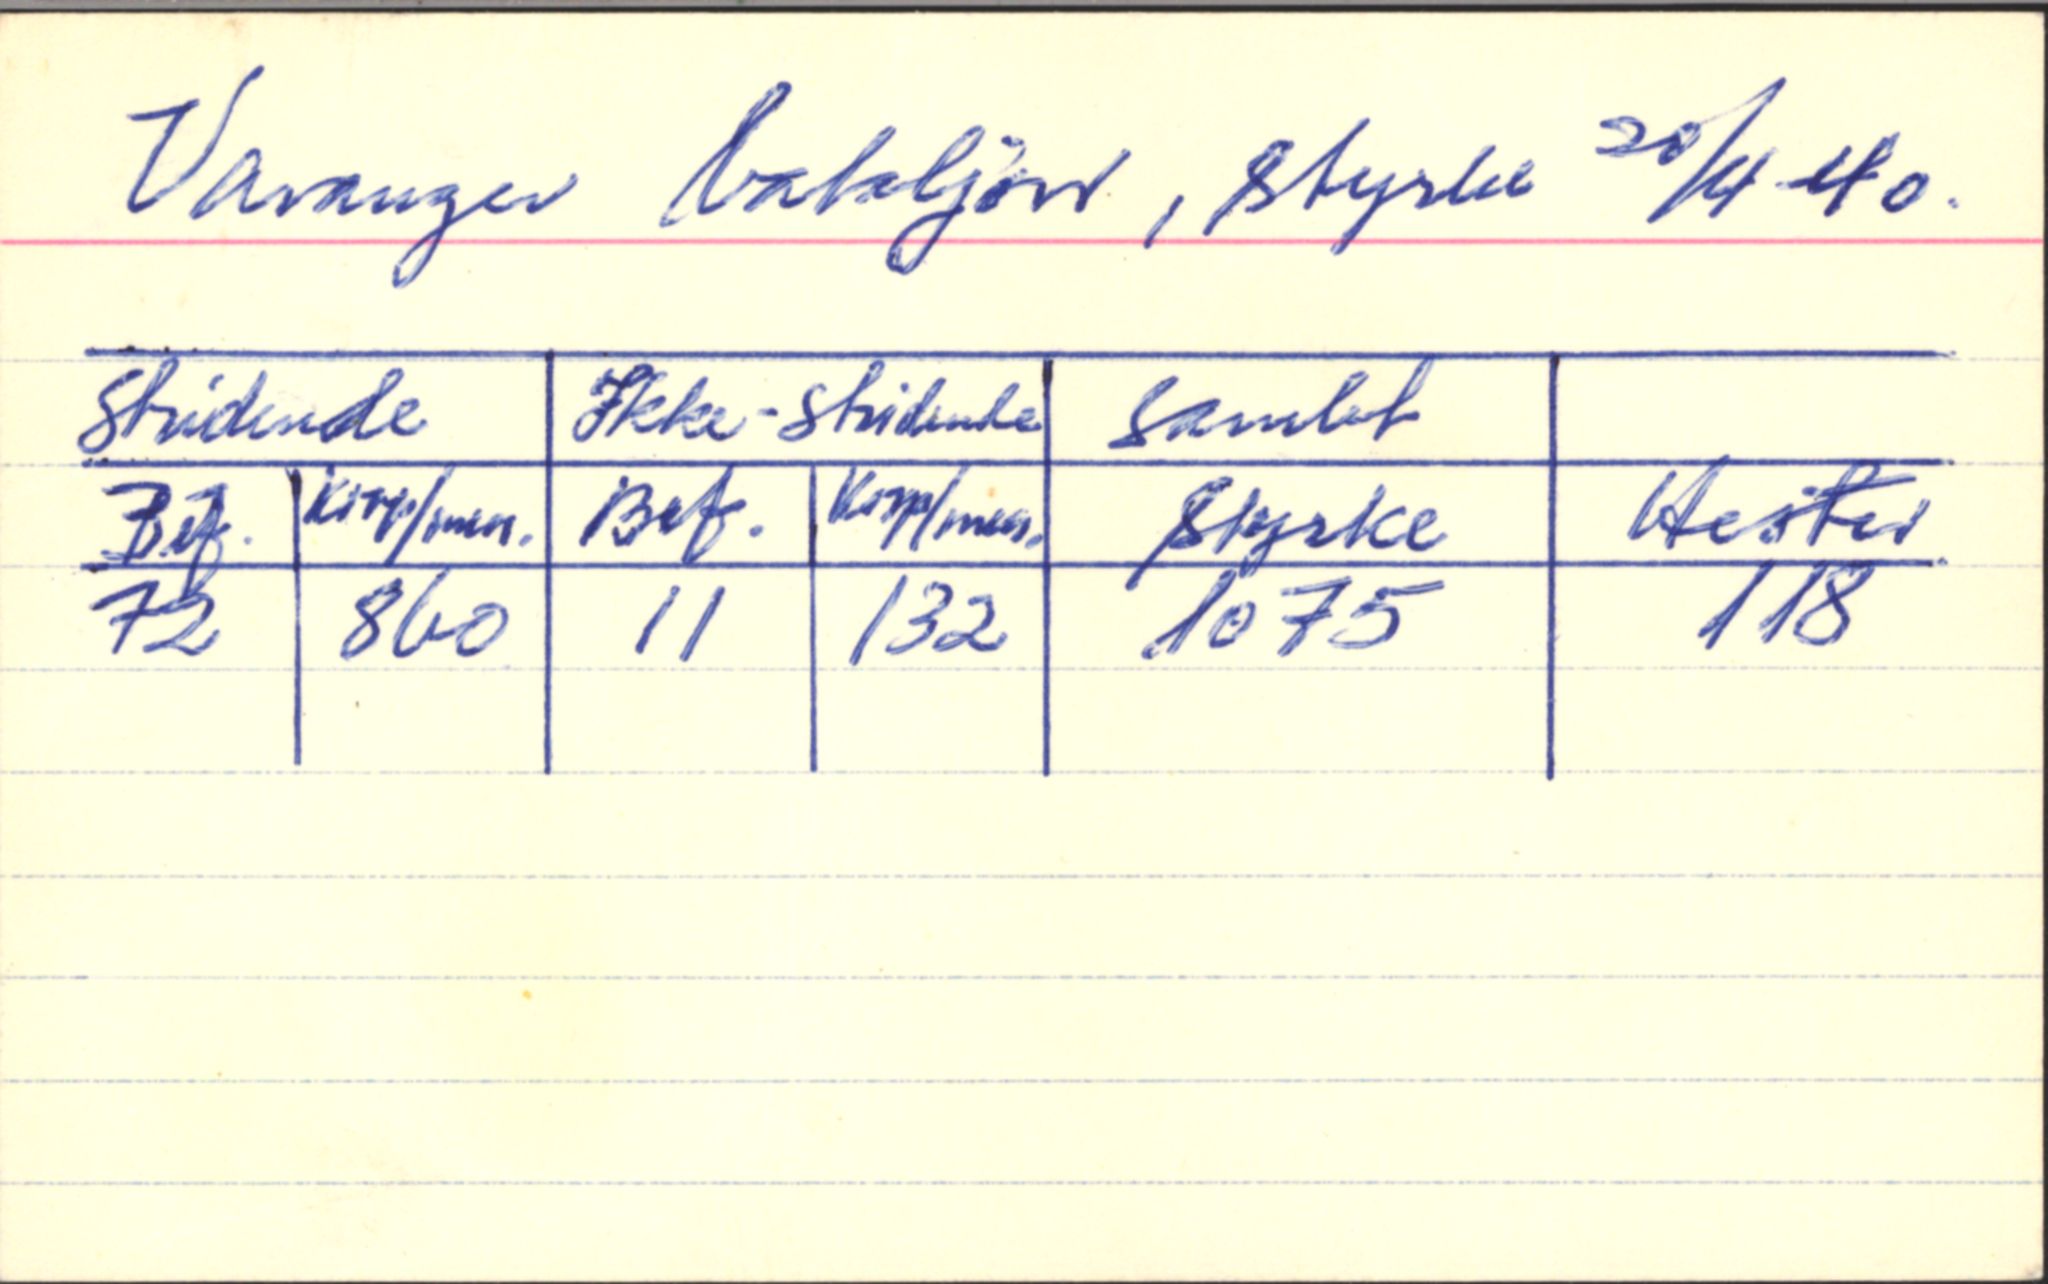 Varanger bataljon, styrke 20/4-40.
Stridende Ikke-Stridende Samlet
Bef. Korp/men. Bef. Korp/men. Styrke Hester
72 860 11 132 1075 118